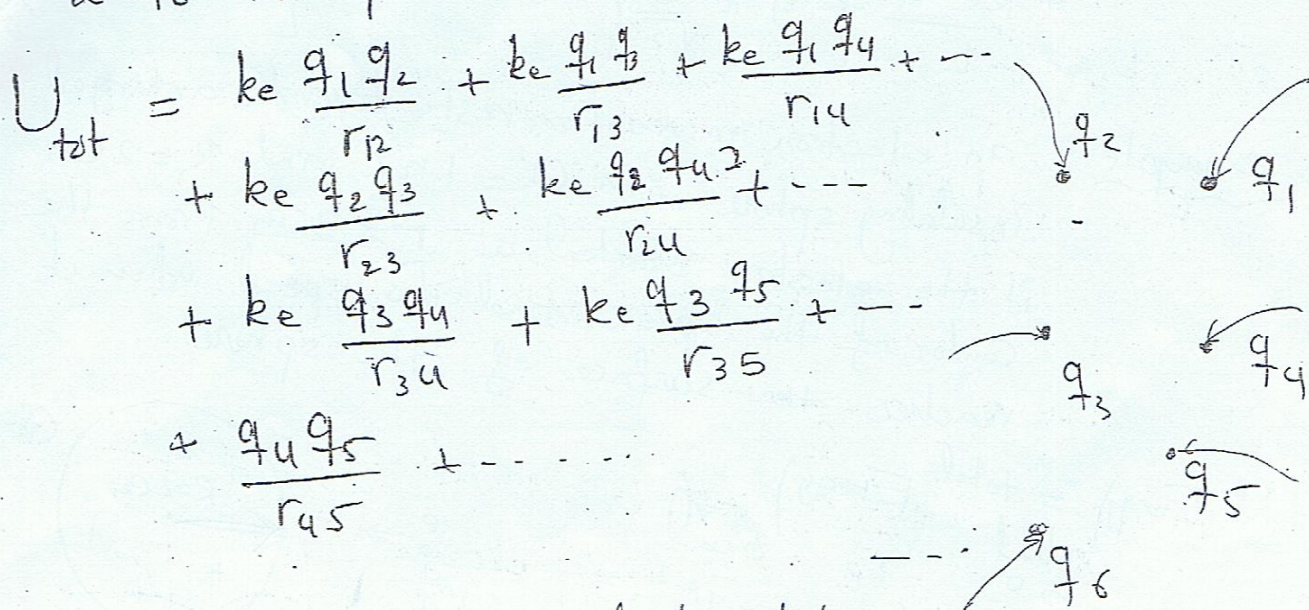 U_tot = ke q1 q2 / r12 + ke q1 q3 / r13 + ke q1 q4 / r14 + ---
+ ke q2 q3 / r23 + ke q2 q4 / r24 + ---
+ ke q3 q4 / r34 + ke q3 q5 / r35 + ---
+ q4 q5 / r45 + - - - - - -
q2
q1
q3
q4
q5
--- q6